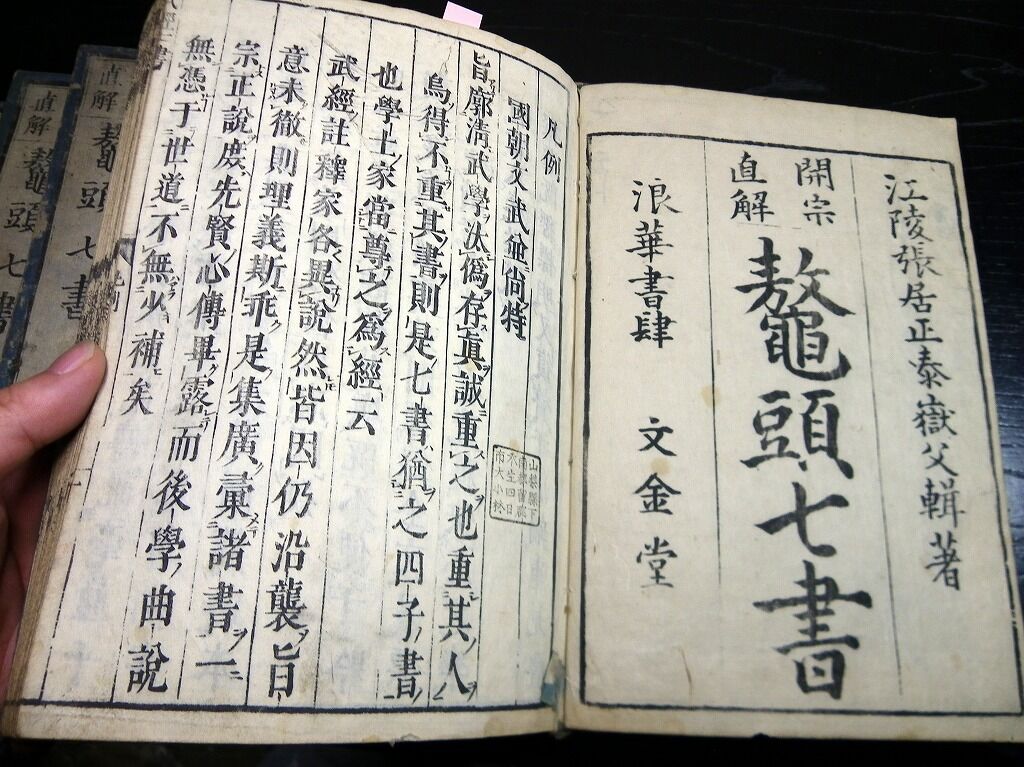 江陵張居正泰嶽父輯著
開宗
直解
鼇頭七書
浪華書肆 文金堂
凡例
國朝文武並尚特
旨廓清武學汰偽存眞誠重之也重其人
烏得不重其書則是七書猶之四子書
也學士家當尊之為經云
武經註釋家各異說然皆因仍沿襲旨
意未徹則理義斯乖是集廣彙諸書一
宗正說度先賢心傳畢露而後學曲說
無憑于世道不無少補矣
直解
鼇頭七書
直解
鼇頭七書